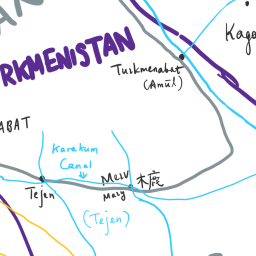 AN
RKMENISTAN
Kago
Turkmenabat
(Amūl)
ABAT
Karakum
Canal
Merv 木鹿
Tejen
Mary
(Tejen)